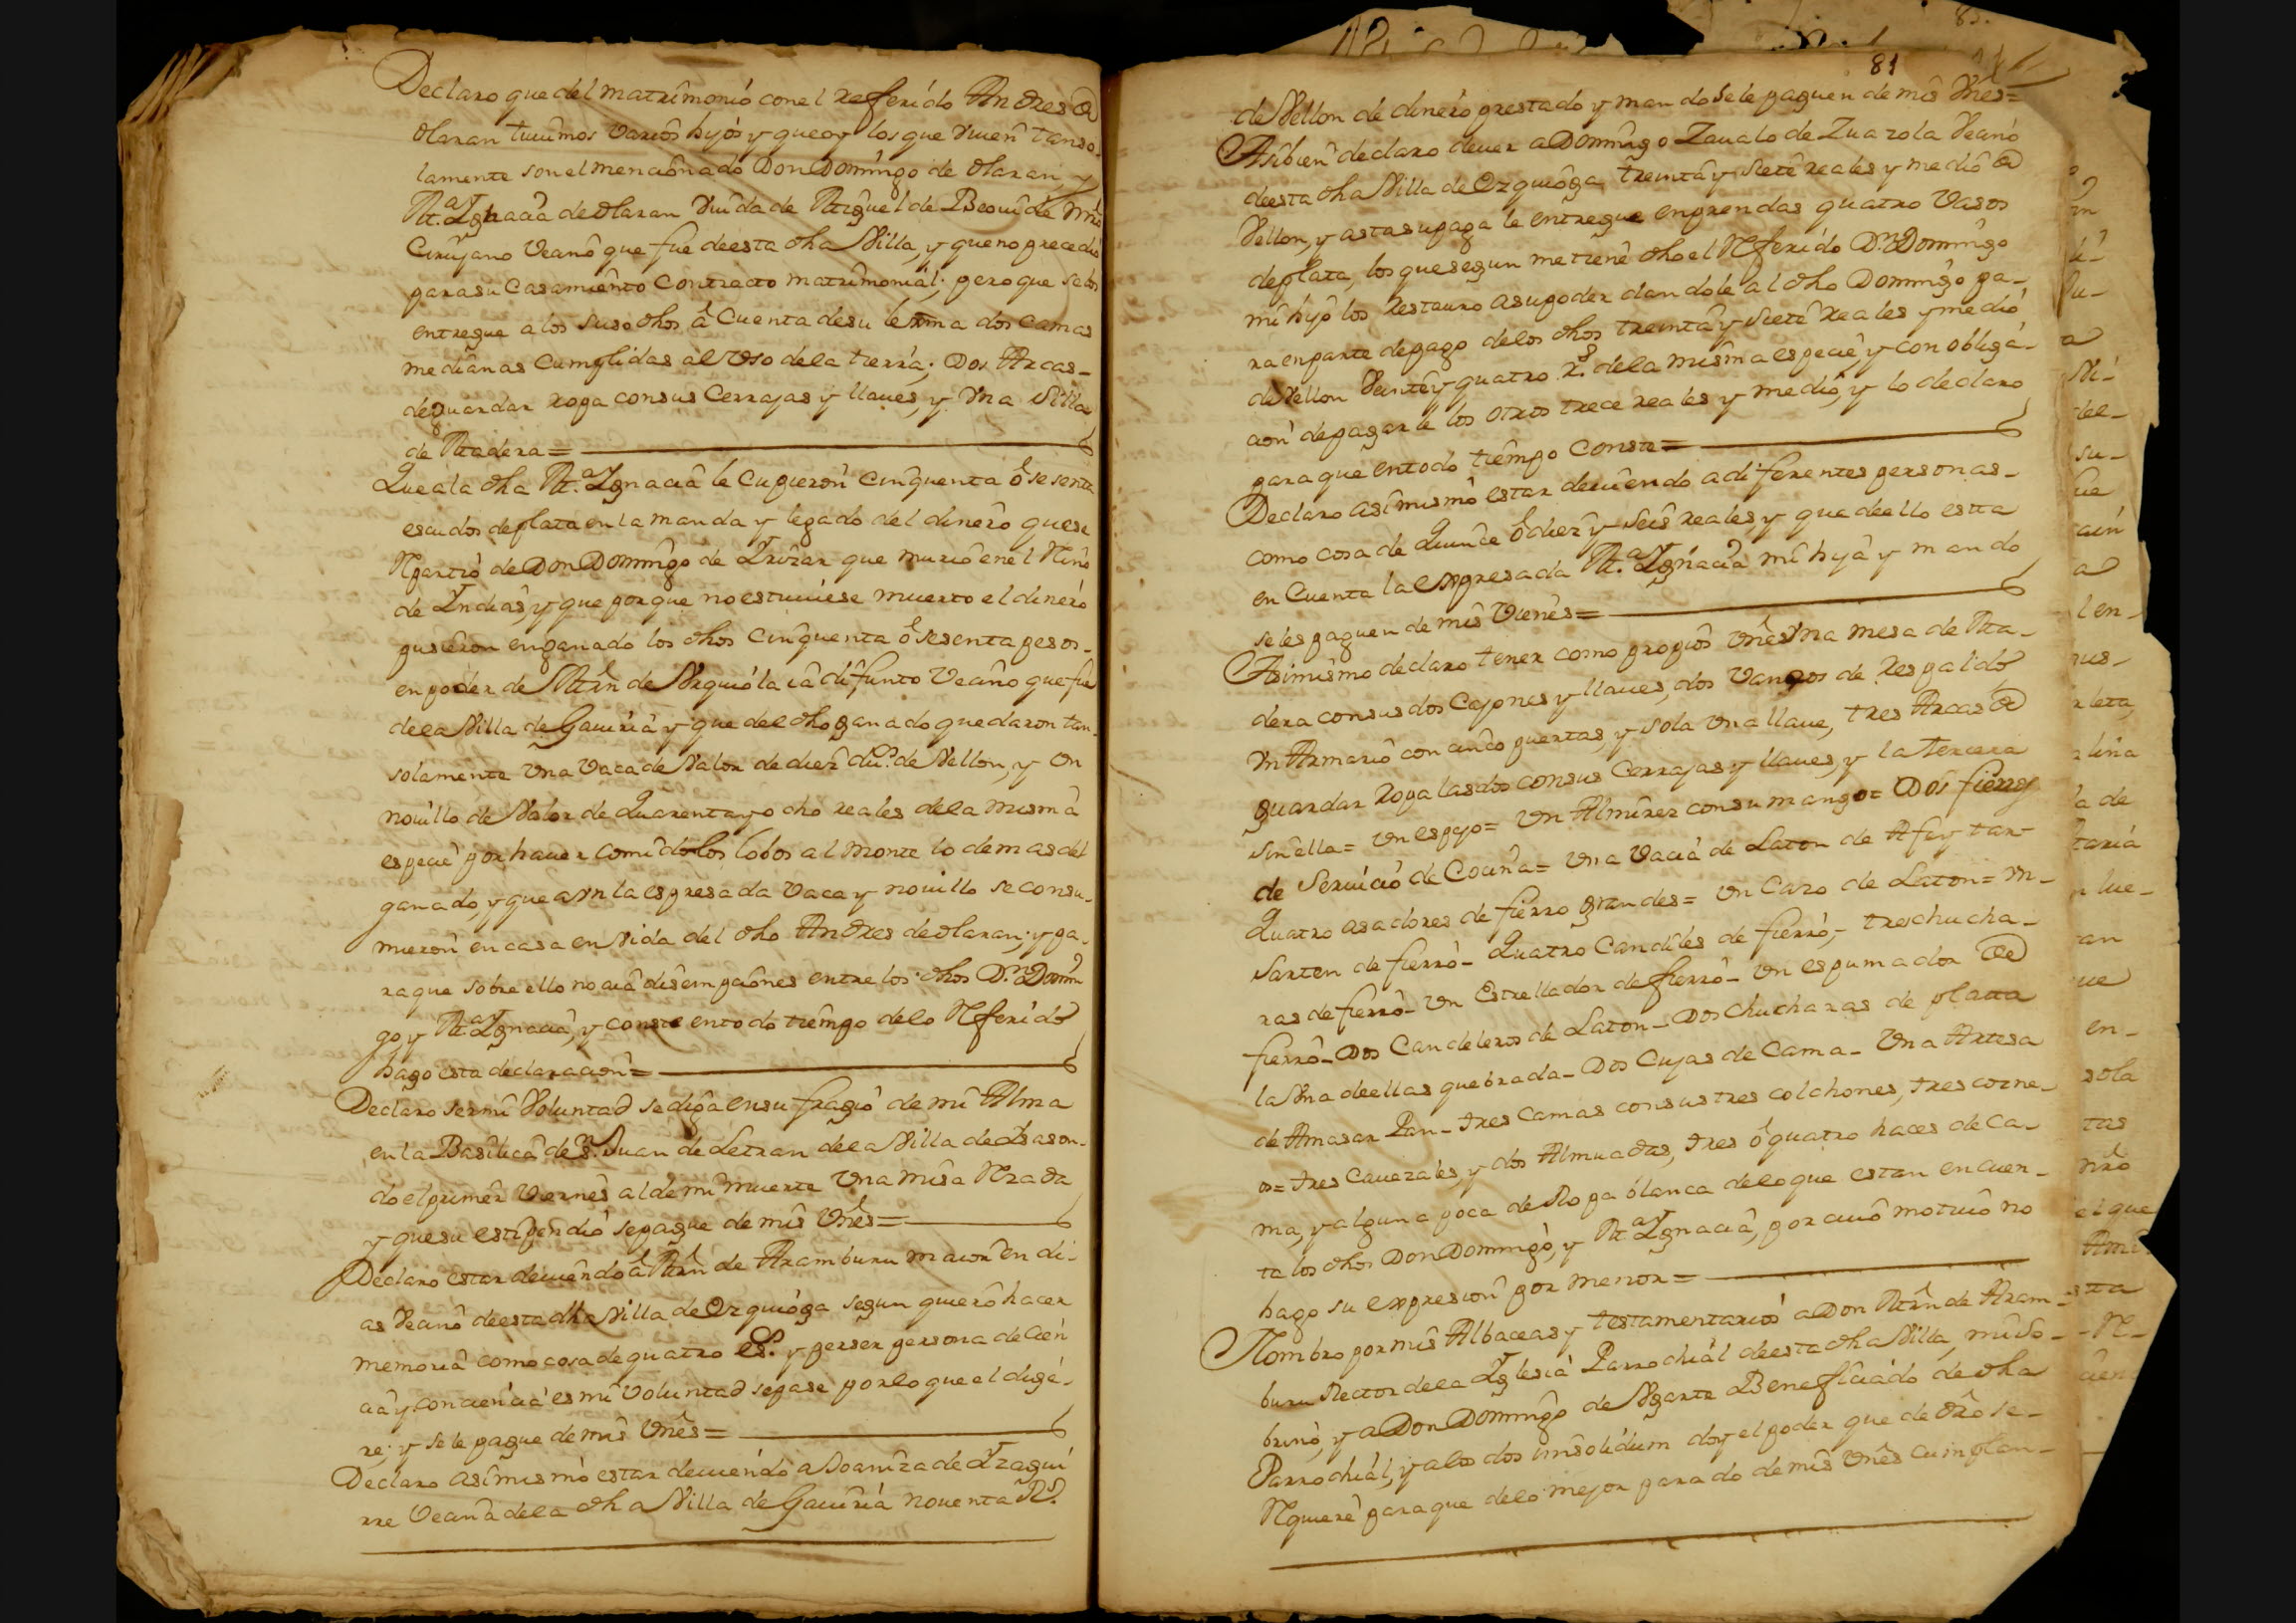 Declaro que del matrimonio con el referido Andres de
olaran tuuimos varios hijos y que oy los que viuen tanso-
lamente son el mencionado Don Domingo de olaran, y
M.ª Ygnacia de olaran viuda de Miguel de Beouide Mro
Cirujano Vecino que fue deesta dha Villa, y que no precedio
para su Casamiento Contracto matrimonial; pero que se los
entregue a los suso dhos â Cuenta de su lexma dos camas
medianas cumplidas al vso dela tierra; Dos Arcas-
de guardar ropa con sus Cerrajas y llaues, y vna Silla
de Madera=
Que ala dha M.ª Ygnacia le cupieron cinquenta ô sesenta
escudos de plata en la manda y legado del dinero que se
Repartió de Don Domingo de Yrizar que murio en el Reino
de Yndias, y que porque no estuuiese muerto el dinero
pusieron en ganado los dhos cinquenta ô sesenta pesos-
en poder de Mrn de Vrquiola ia difunto Vecino que fue
dela Villa de Gauiria y que del dho ganado quedaron tan-
solamente vna vaca de Valor de diez du.s de Vellon, y vn
nouillo de Valor de Quarenta y ocho reales dela misma
especie por hauer comido los lobos al monte lo demas del
ganado, y que aun la espresada vaca y nouillo se consu-
mieron en casa en vida del dho Andres de olaran; y pa-
ra que sobre ello no aia disempciones entre los dhos D.n Domin
go, y M.ª Ygnacia, y conste en todo tiempo delo Referido
hago esta declaracion=
Declaro ser mi Voluntad se diga en sufragio de mi Alma
en la Basilica de S. Juan de Letran dela Villa de Ysason-
do el primer viernes al de mi muerte vna misa Rezada
y que su estipendio se pague de mis vnes=
Declaro estar deuiendo â Mrn de Aramburu maior en di-
as Vecino deesta dha Villa de Ezquioga segun quiero hacer
memoria como cosa de quatro es.s y por ser persona de cien
cia y conciencia es mi voluntad se pase por lo que el dige-
re; y se le pague de mis vnes=
Declaro asimismo estar deuiendo a Joaniza de Yzagui
rre Vecina dela dha Villa de Gauiria nouenta R.s
81
de Vellon de dinero prestado y mando se le paguen de mis vnes=
Asibien declaro deuer a Domingo Zaualo de Zuazola Vecino
deesta dha Villa de Ezquioga treinta y siete reales y medio de
Vellon, y asta su paga le entregue en prendas quatro vasos
de plata, los que segun me tiene dho el Referido D.n Domingo
mi hijo los restauro a su poder dandole al dho Domingo pa-
ra en parte de pago delos dhos treinta y siete reales y medio
de Vellon veinte y quatro r.s dela misma especie, y con obliga-
cion de pagarle los otros trece reales y medio, y lo declaro
para que en todo tiempo Conste=
Declaro asimismo estar deuiendo a diferentes personas-
como cosa de Quince ô diez y seis reales, y que de ello esta
en Cuenta la expresada M.ª Ygnacia mi hija y mando
se les paguen de mis vienes=
Asimismo declaro tener como propios vnes vna mesa de Ma-
dera con sus dos Cajones y llaues, dos vancos de respaldo
vn Armario con cinco puertas, y sola vna llaue, tres Arcas de
guardar ropa las dos con sus Cerrajas y llaues, y la tercera
sin ella= vn espejo= vn Almirez con su mango= Dos fierros
de Seruicio de Cocina= vna vacia de Laton de Afeytar-
Quatro asadores de fierro grandes= vn Cazo de Laton= vn-
Sarten de fierro- Quatro Candiles de fierro,- tres chucha-
ras de fierro- vn Estrellador de fierro- vn espumador de
fierro- Dos Candeleros de Laton- Dos Chucharas de platta
la vna de ellas quebrada- Dos Cujas de Cama- vna Artesa
de Amasar Pan- tres camas con sus tres colchones, tres corne-
os= tres cauezales, y dos Almuadas, tres ô quatro haces de ca-
ma, y alguna poca de Ropa blanca delo que estan en cuen-
ta los dhos Don Domingo, y M.ª Ygnacia, por cuio motiuo no
hago su expresion por menor=
Nombro por mis Albaceas y testamentarios a Don Mrn de Aram-
buru Rector dela Yglesia Parrochial deesta dha Villa, mi So-
brino, y a Don Domingo de Vgarte Beneficiado de dha
Parrochial, y alos dos insolidum doy el poder que de dro se-
Requiere para que delo mejor parado de mis vnes cumplan-